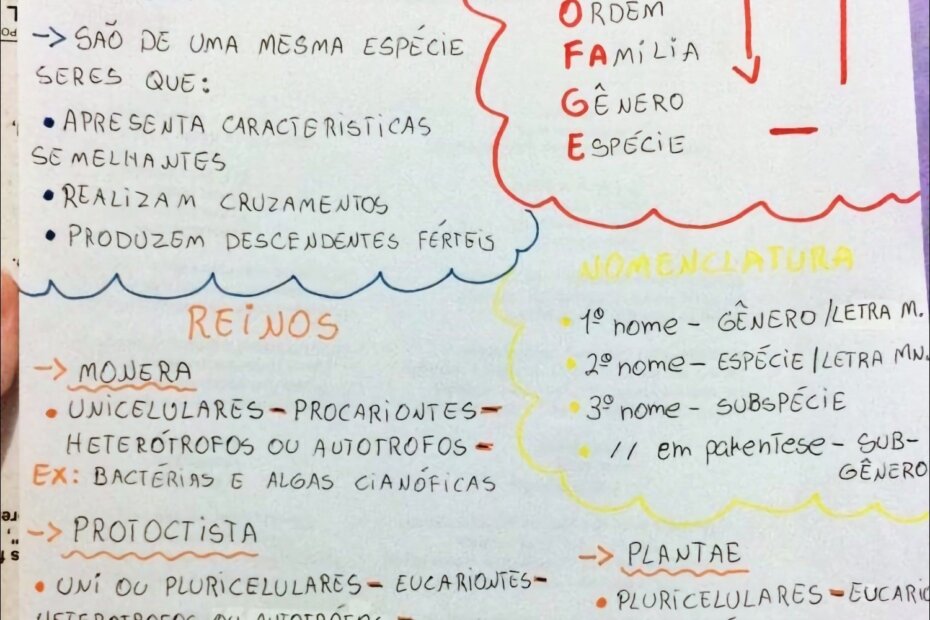 → SÃO DE UMA MESMA ESPÉCIE
SERES QUE:
• APRESENTA CARACTERISTICAS
SEMELHANTES
• REALIZAM CRUZAMENTOS
• PRODUZEM DESCENDENTES FÉRTEIS
ORDEM
FAMÍLIA
GÊNERO
ESPÉCIE
NOMENCLATURA
• 1º nome - GÊNERO/LETRA M.
• 2º nome - ESPÉCIE/LETRA MN.
• 3º nome - SUBSPÉCIE
• // em parentese - SUB-
GÊNERO
REINOS
→ MONERA
• UNICELULARES - PROCARIONTES -
HETERÓTROFOS OU AUTOTROFOS -
EX: BACTÉRIAS E ALGAS CIANÓFICAS
→ PROTOCTISTA
• UNI OU PLURICELULARES - EUCARIONTES -
HETEROTROFOS OU AUTOTRÓFOS -
→ PLANTAE
• PLURICELULARES - EUCARIO